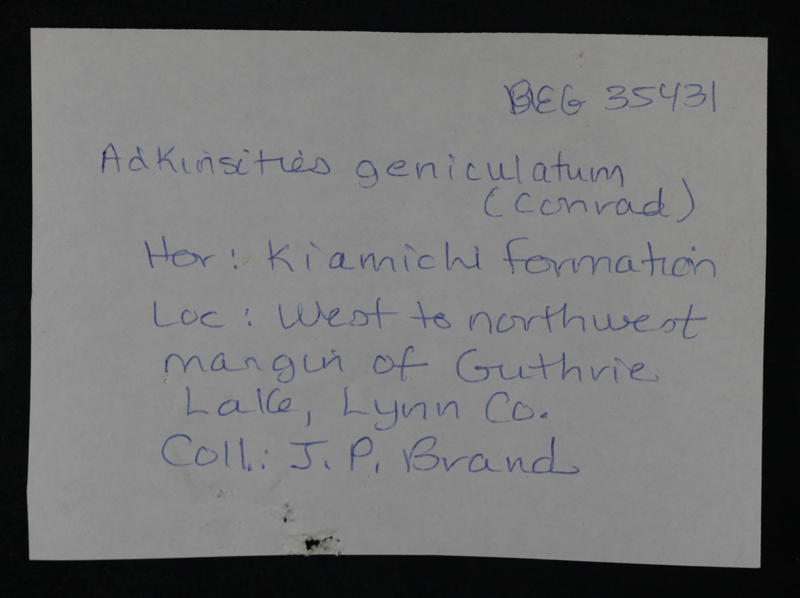 BEG 35431
Adkinsities geniculatum
(Conrad)
Hor: Kiamichi formation
Loc: West to northwest
margin of Guthrie
Lake, Lynn Co.
Coll.: J. P. Brand